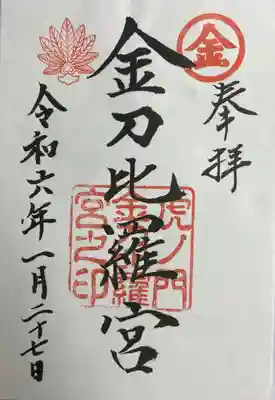 奉拝
金
金刀比羅宮
虎ノ門
金刀比羅
宮之印
令和六年一月二十七日